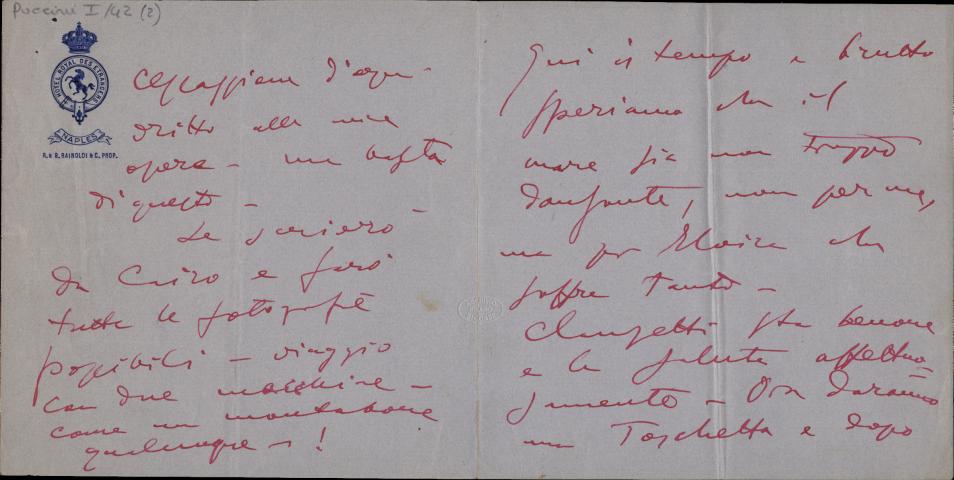 Puccini I/42 (2)
HOTEL ROYAL DES ETRANGERS
NAPLES
R. & B. RAINOLDI & C. PROP.
d'ogni
dritto alle mie
opere - ma basta
di questo -
Le scriverò
da Cairo e farò
tutte le fotografie
possibili - viaggio
con due macchine -
come un
qualunque - !
Qui il tempo è brutto
speriamo che il
mare sia non troppo
danzante, non per me,
ma per Elvira che
soffre tanto -
Clausetti sta benone
e la saluta affettuo
samente - Ora daranno
una Toschetta e dopo